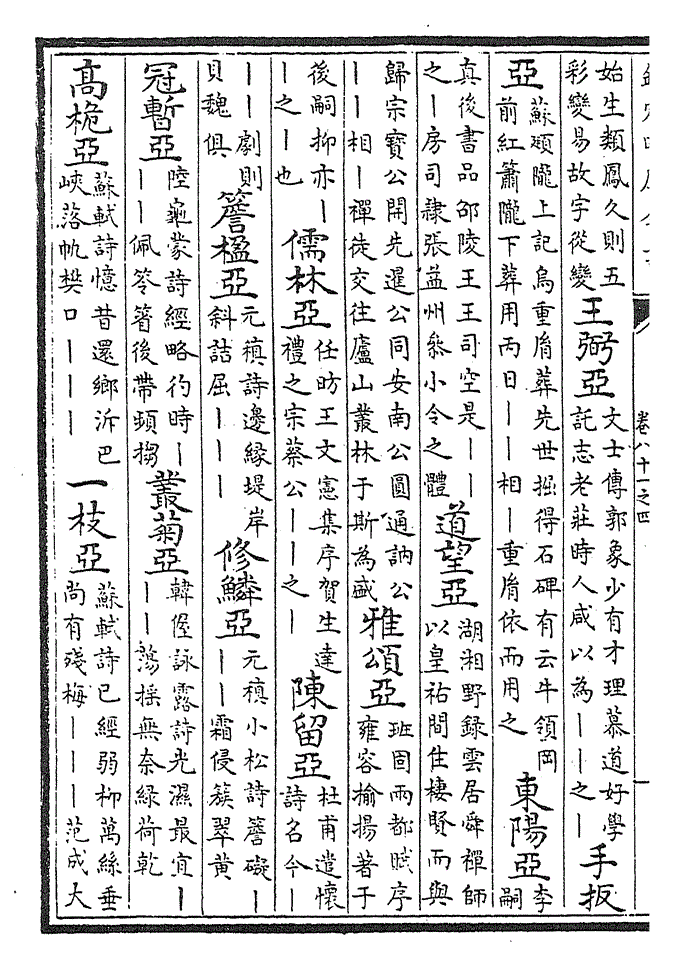 卷八十一之四
始生類鳳久則五彩變易故字從變王弼亞文士傳郭象少有才理慕道好學託志老莊時人咸以為丨丨之丨手扳
亞蘇頲隴上記烏重脀葬先世掘得石碑有云牛領岡前紅簫隴下葬用丙日丨丨相丨重脀依而用之東陽亞李嗣
真後書品邵陵王王司空是丨丨之丨房司隸張益州參小令之體道望亞湖湘野錄雲居舜禪師以皇祐間住棲賢而與
歸宗寶公開先暹公同安南公圓通訥公丨丨相丨禪徒交往廬山叢林于斯為盛雅頌亞班固兩都賦序雍容揄揚著于
後嗣抑亦丨丨之丨也儒林亞任昉王文憲集序賀生達禮之宗蔡公丨丨之丨陳留亞杜甫遣懷詩名今丨
丨丨劇則貝魏俱簷楹亞元稹詩邊緣堤岸斜詰屈丨丨丨修鱗亞元稹小松詩簷礙丨丨丨霜侵簇翠黃
冠暫亞陸龜蒙詩經略彴時丨丨丨佩笭箵後帶頻搊叢菊亞韓偓詠露詩光濕最宜丨丨丨蕩搖無奈綠荷乾
高桅亞蘇軾詩憶昔還鄉泝巴峽落帆樊口丨丨丨一枝亞蘇軾詩已經弱柳萬絲垂尚有殘梅丨丨丨范成大